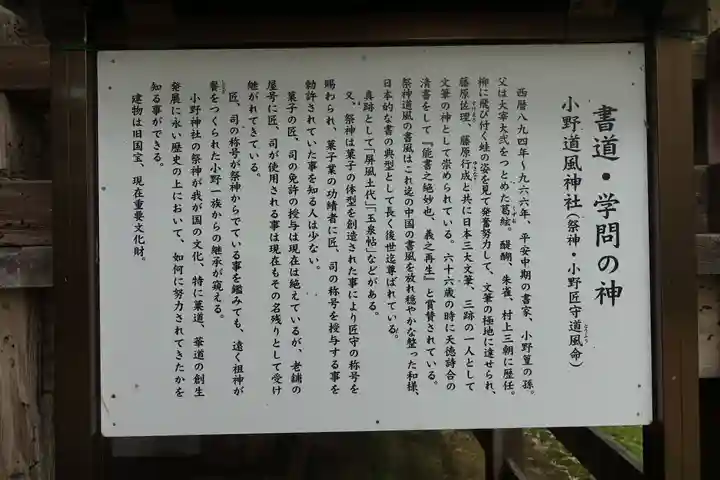 書道・学問の神
小野道風神社(祭神・小野匠守道風命)
とうふう
西暦八九四年〜九六六年、平安中期の書家、小野篁の孫。
父は大宰大弐をつとめた葛絃。醍醐、朱雀、村上三朝に歴任。
くずお
柳に飛び付く蛙の姿を見て発奮努力して、文筆の極地に達せられ、
藤原佐理、藤原行成と共に日本三大文筆、三跡の一人として
文筆の神として崇められている。六十六歳の時に天徳詩合の
清書をして『能書之絶妙也、羲之再生』と賞賛されている。
祭神道風の書風はこれ迄の中国の書風を放れ穏やかな整った和様、
日本的な書の典型として長く後世迄尊ばれている。
真跡として「屏風土代」「玉泉帖」などがある。
又、祭神は菓子の体型を創造された事により匠守の称号を
賜わられ、菓子業の功績者に匠、司の称号を授与する事を
勅許されていた事を知る人は少ない。
菓子の匠、司の免許の授与は現在は絶えているが、老舗の
屋号に匠、司が使用される事は現在もその名残りとして受け
継がれてきている。
匠、司の称号が祭神からでている事を鑑みても、遠く祖神が
餐をつくられた小野一族からの継承が窺える。
小野神社の祭神が我が国の文化、特に菓道、華道の創生
発展に永い歴史の上において、如何に努力されてきたかを
知る事ができる。
建物は旧国宝、現在重要文化財。